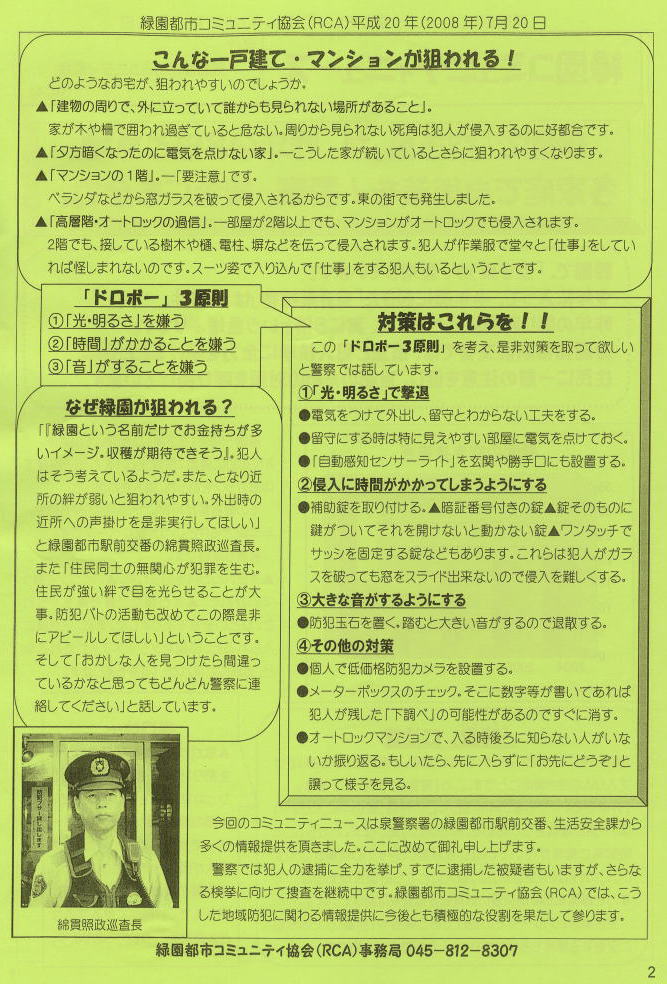 緑園都市コミュニティ協会(RCA)平成20年(2008年)7月20日
こんな一戸建て・マンションが狙われる！
どのようなお宅が、狙われやすいのでしょうか。
▲「建物の周りで、外に立っていて誰からも見られない場所があること」。
家が木や柵で囲われ過ぎていると危ない。周りから見られない死角は犯人が侵入するのに好都合です。
▲「夕方暗くなったのに電気を点けない家」。―こうした家が続いているとさらに狙われやすくなります。
▲「マンションの1階」。―「要注意」です。
ベランダなどから窓ガラスを破って侵入されるからです。東の街でも発生しました。
▲「高層階・オートロックの過信」。―部屋が2階以上でも、マンションがオートロックでも侵入されます。
2階でも、接している樹木や樋、電柱、塀などを伝って侵入されます。犯人が作業服で堂々と「仕事」をしてい
れば怪しまれないのです。スーツ姿で入り込んで「仕事」をする犯人もいるということです。
「ドロボー」3原則
①「光・明るさ」を嫌う
②「時間」がかかることを嫌う
③「音」がすることを嫌う
なぜ緑園が狙われる？
「『緑園という名前だけでお金持ちが多
いイメージ。収穫が期待できそう』。犯人
はそう考えているようだ。また、となり近
所の絆が弱いと狙われやすい。外出時の
近所への声掛けを是非実行してほしい」
と緑園都市駅前交番の綿貫照政巡査長。
また「住民同士の無関心が犯罪を生む。
住民が強い絆で目を光らせることが大
事。防犯パトの活動も改めてこの際是非
にアピールしてほしい」ということです。
そして「おかしな人を見つけたら間違っ
ているかなと思ってもどんどん警察に連
絡してください」と話しています。
綿貫照政巡査長
対策はこれらを！！
この「ドロボー3原則」を考え、是非対策を取って欲しい
と警察では話しています。
①「光・明るさ」で撃退
●電気をつけて外出し、留守とわからない工夫をする。
●留守にする時は特に見えやすい部屋に電気を点けておく。
●「自動感知センサーライト」を玄関や勝手口にも設置する。
②侵入に時間がかかってしまうようにする
●補助錠を取り付ける。▲暗証番号付きの錠▲錠そのものに
鍵がついてそれを開けないと動かない錠▲ワンタッチで
サッシを固定する錠などもあります。これらは犯人がガラ
スを破っても窓をスライド出来ないので侵入を難しくする。
③大きな音がするようにする
●防犯玉石を置く。踏むと大きい音がするので退散する。
④その他の対策
●個人で低価格防犯カメラを設置する。
●メーターボックスのチェック。そこに数字等が書いてあれば
犯人が残した「下調べ」の可能性があるのですぐに消す。
●オートロックマンションで、入る時後ろに知らない人がいな
いか振り返る。もしいたら、先に入らずに「お先にどうぞ」と
譲って様子を見る。
今回のコミュニティニュースは泉警察署の緑園都市駅前交番、生活安全課から
多くの情報提供を頂きました。ここに改めて御礼申し上げます。
警察では犯人の逮捕に全力を挙げ、すでに逮捕した被疑者もいますが、さらな
る検挙に向けて捜査を継続中です。緑園都市コミュニティ協会(RCA)では、こう
した地域防犯に関わる情報提供に今後とも積極的な役割を果たして参ります。
緑園都市コミュニティ協会(RCA)事務局 045-812-8307
2